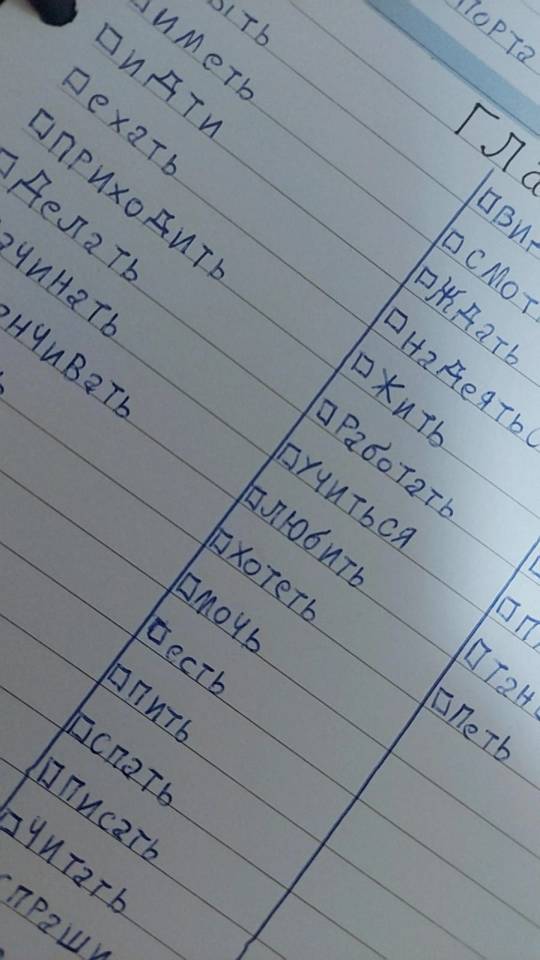 ыть
иметь
идти
ехать
приходить
делать
ачинать
анчивать
ь
порта
Гла
ви
смот
ждать
надеятьс
жить
работать
учиться
любить
хотеть
мочь
есть
пить
спать
писать
читать
спраши
п
тан
петь